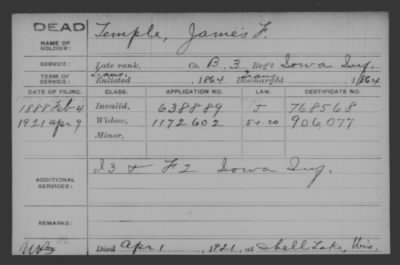 DEAD
NAME OF SOLDIER: Temple, James F.
SERVICE: Late rank, Co. B, 3 Reg't Iowa Inf.
TERM OF SERVICE: Trans. Enlisted , 1864 Trans. Discharged , 1864
DATE OF FILING. CLASS. APPLICATION NO. LAW. CERTIFICATE NO.
1888 Feb 4 Invalid, 638889 J 768568
1921 Apr 9 Widow, 1172602 906077
Minor,
ADDITIONAL SERVICES: I 3 & F 2 Iowa Inf.
REMARKS:
Died Apr 1, 1921, at Shell Lake, Wis.